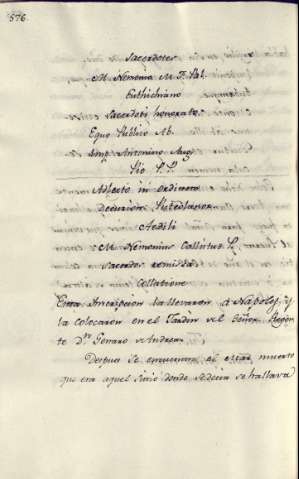 576.
Sacerdotes
M. Nemonio M. F. Pal.
Euthichiano
Sacerdoti honorato
Equo Publico Ab.
Imp. Antonino Aug
Pio P. P.
Adlecto in Ordinem
Decurion.
Aedili
M. Nemonius Callistus P.
Sacerdos remissa
Collatione
Esta Inscripcion la llevaron á Napoles, y
la colocaron en el Jardin del Señor Regen
te Dn. Genaro de Andrea.
Despues se encuentra el mar muerto
que era aquel sitio donde se decia se hallava